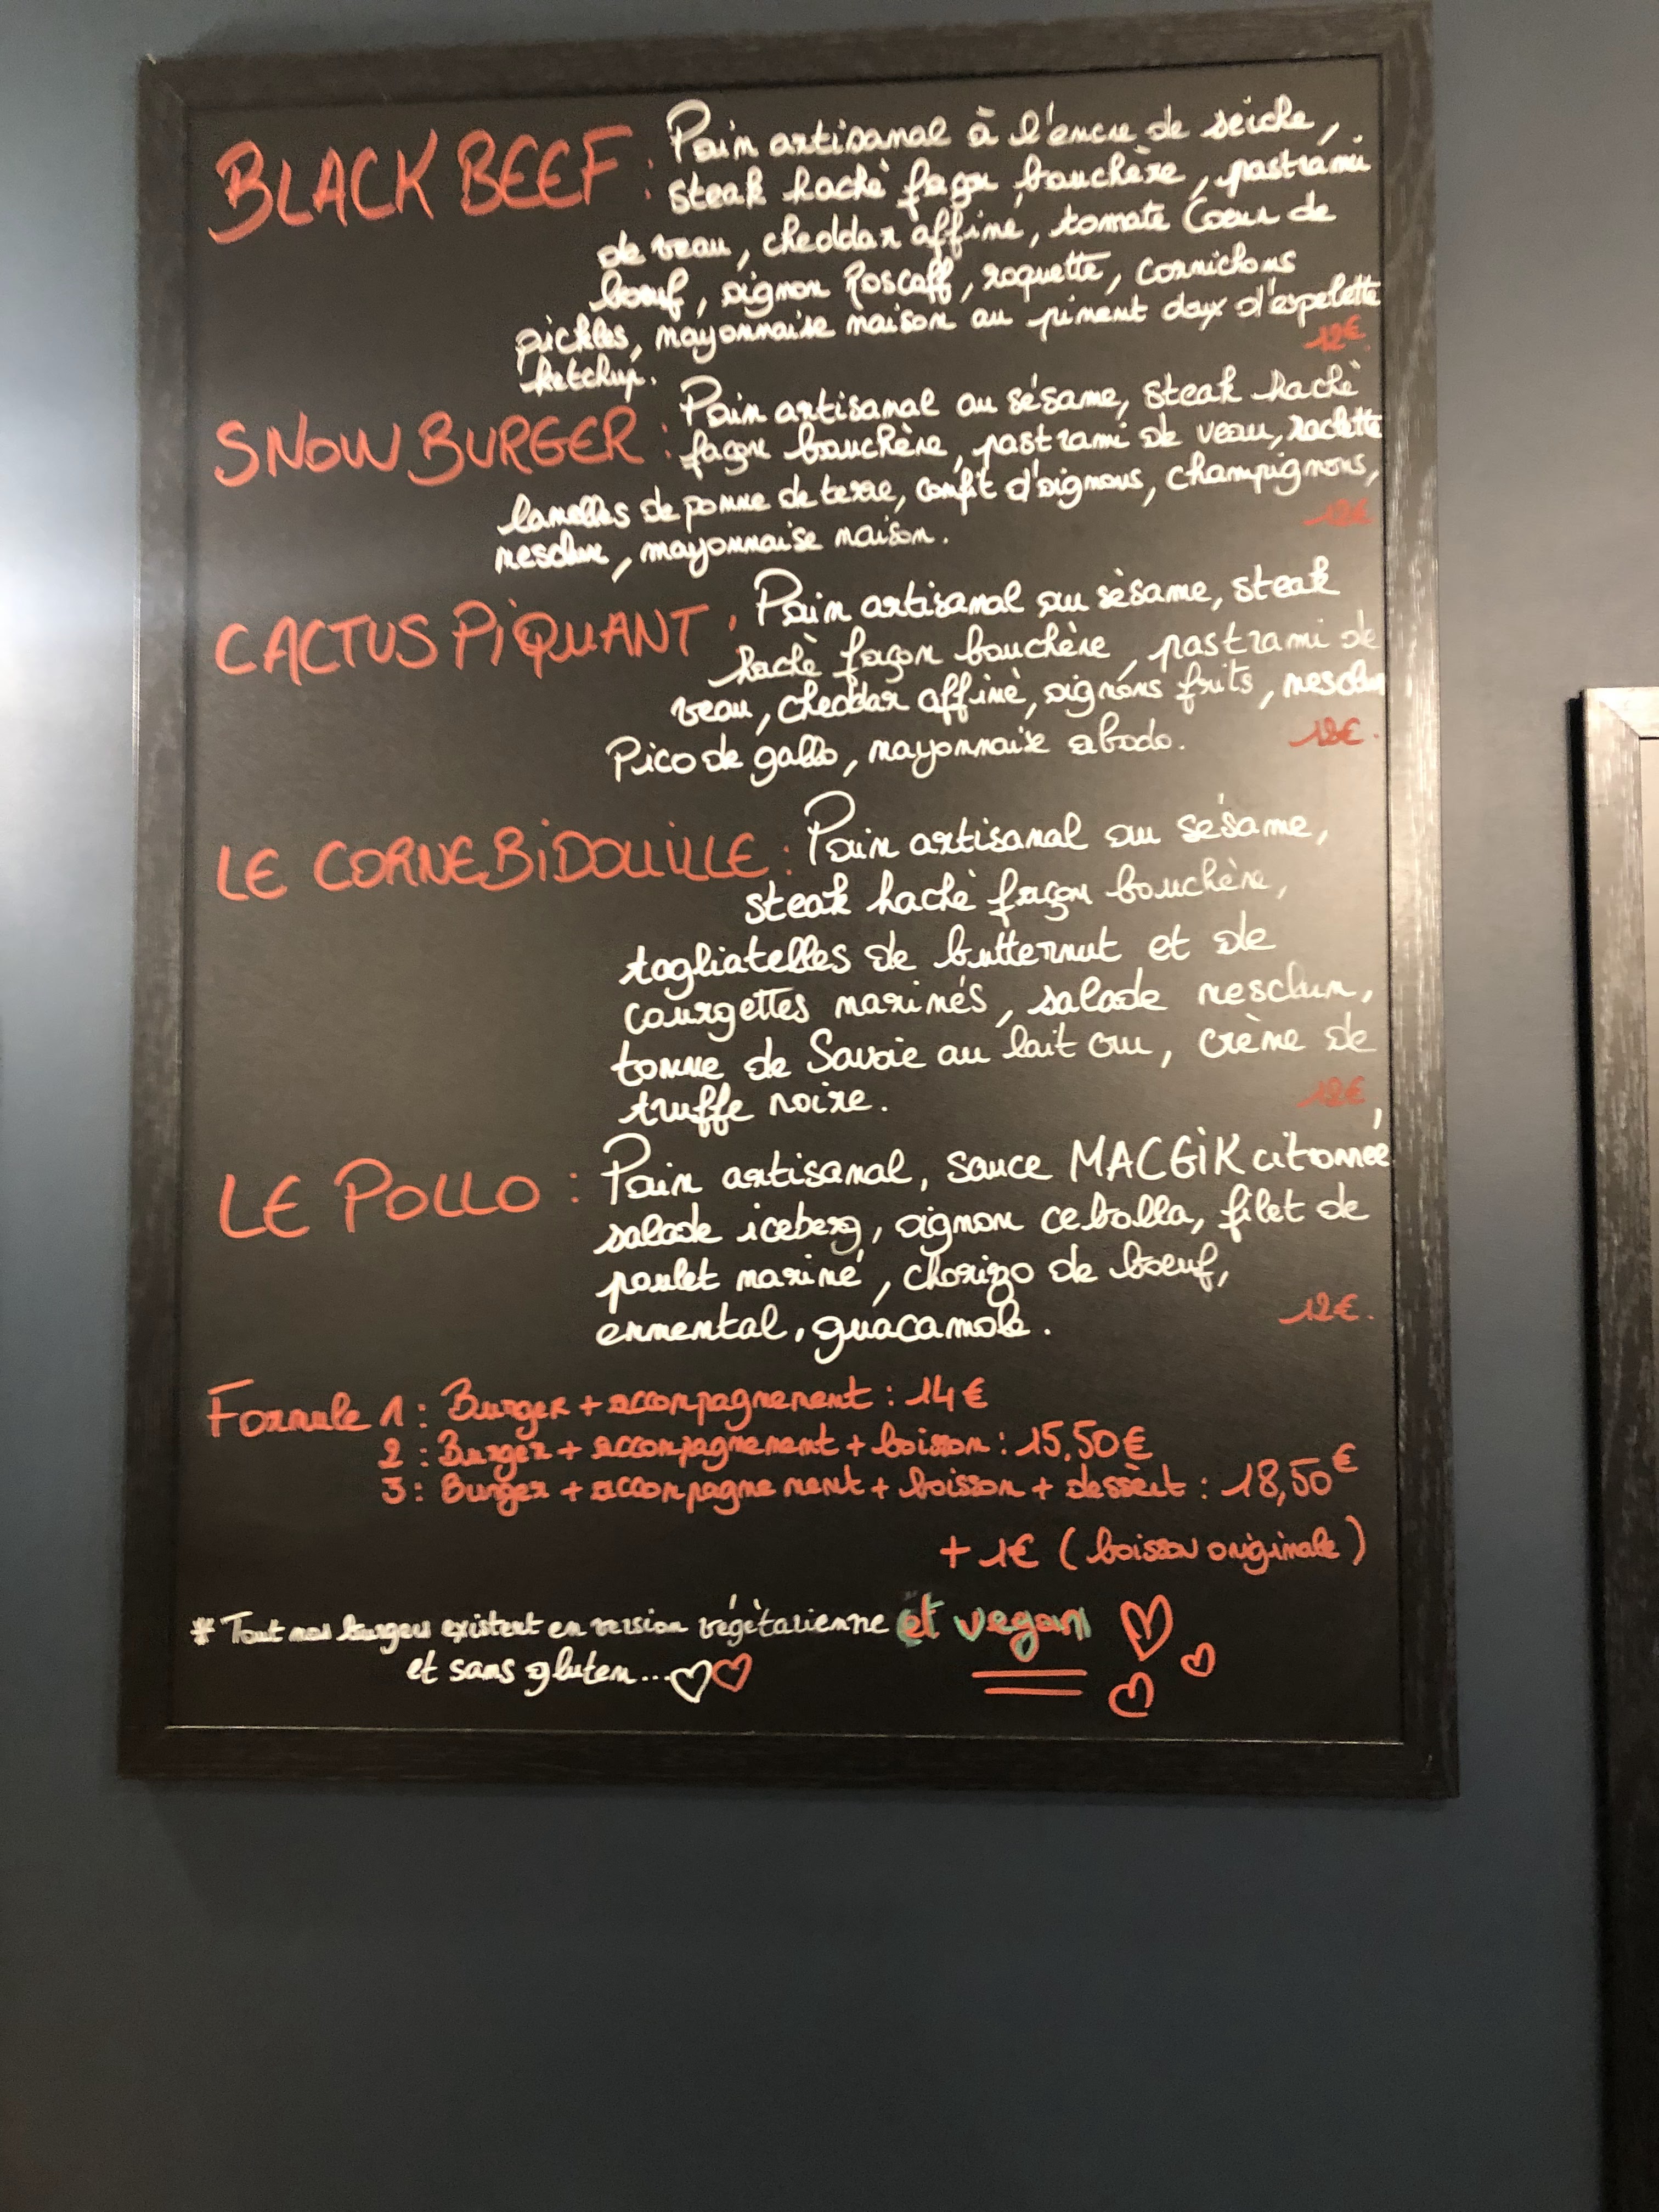 BLACK BEEF : Pain artisanal à l'encre de seiche,
steak haché façon bouchère, pastrami
de veau, cheddar affiné, tomate Coeur de
boeuf, oignon Roscoff, roquette, cornichons
pickles, mayonnaise maison au piment doux d'espelette
ketchup. 12€
SNOW BURGER : Pain artisanal au sésame, steak haché
façon bouchère, pastrami de veau, raclette
lamelles de pomme de terre, confit d'oignons, champignons,
mesclun, mayonnaise maison. 12€
CACTUS PIQUANT : Pain artisanal au sésame, steak
haché façon bouchère, pastrami de
veau, cheddar affiné, oignons frits, mesclun
Pico de gallo, mayonnaise abodo. 12€.
LE CORNEBIDOUILLE : Pain artisanal au sésame,
steak haché façon bouchère,
tagliatelles de butternut et de
courgettes marinés, salade mesclun,
tomme de Savoie au lait cru, crème de
truffe noire. 12€
LE POLLO : Pain artisanal, sauce MACGIK citronnée,
salade iceberg, oignon cebolla, filet de
poulet mariné, chorizo de boeuf,
emmental, guacamole. 12€.
Formule 1 : Burger + accompagnement : 14€
2 : Burger + accompagnement + boisson : 15,50€
3 : Burger + accompagnement + boisson + dessert : 18,50€
+ 1€ (boisson originale)
* Tout nos burgers existent en version végétarienne et vegan
et sans gluten...